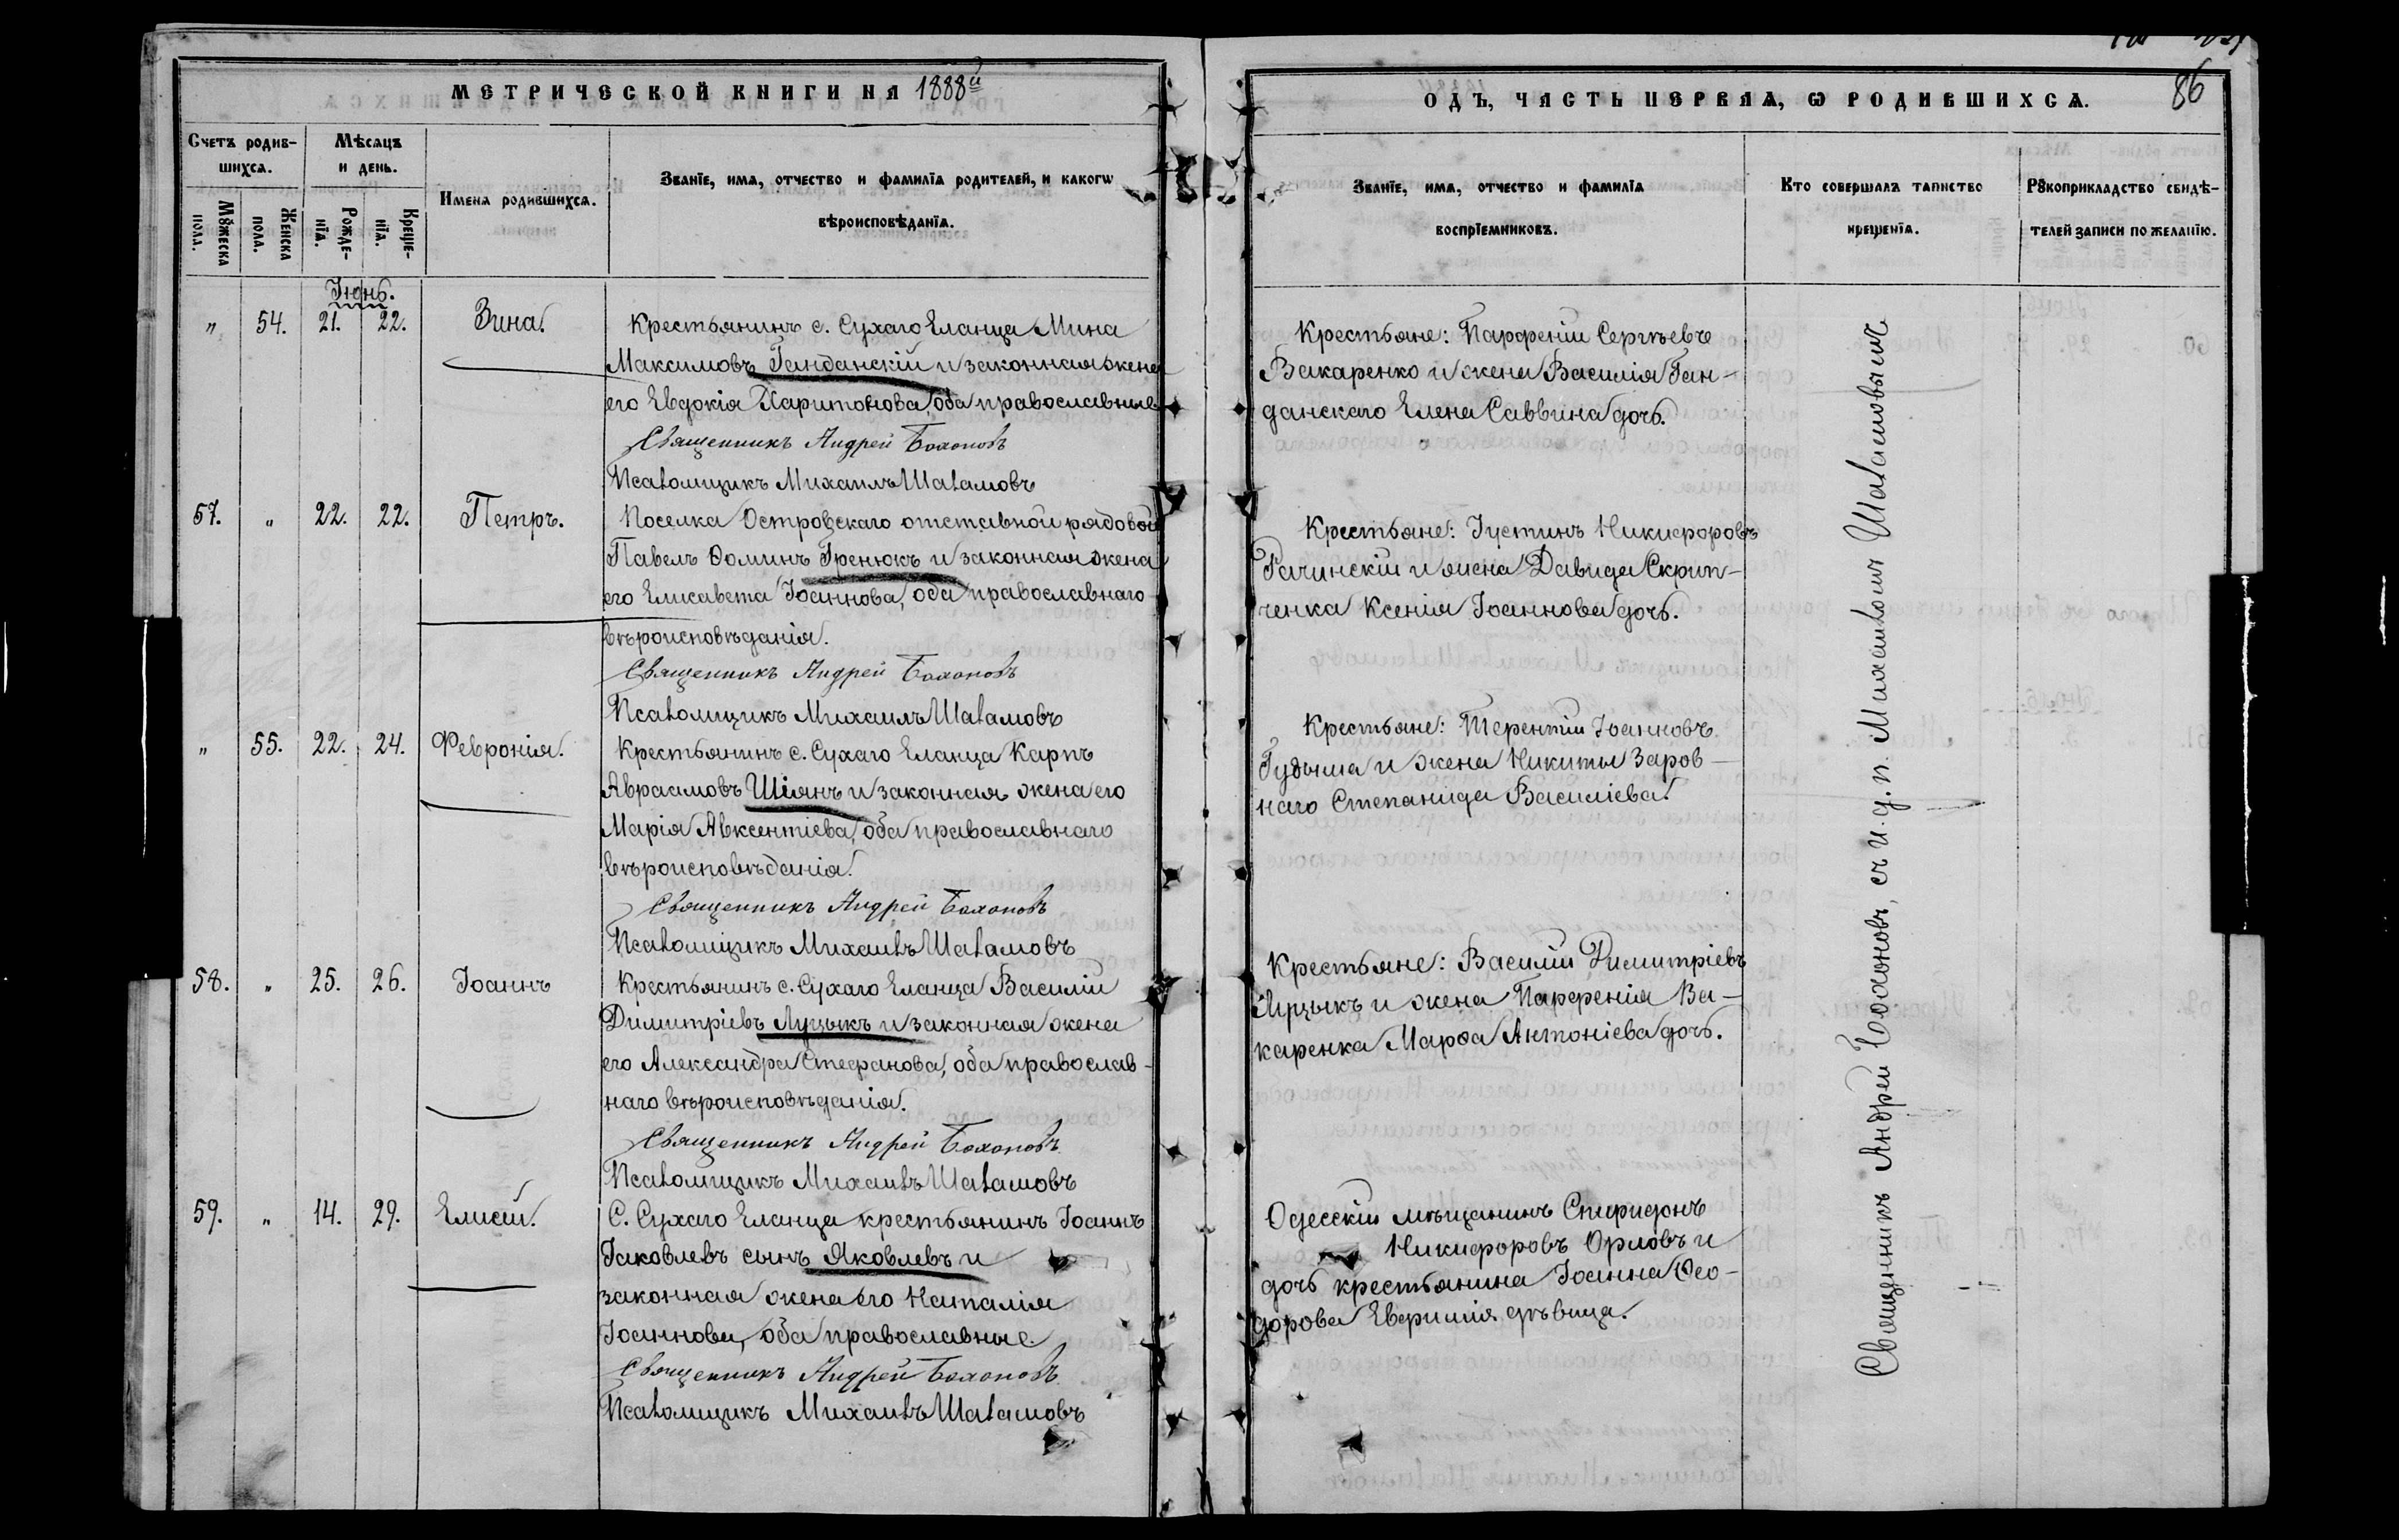 МЕТРИЧЕСКОЙ КНИГИ НА 1888й
Счетъ родив-
шихся.
Мѣсяцъ
и день.
Имена родившихся.
Званїе, имя, отчество и фамилїа родителей, и какогѡ
вѣроисповѣданїя.
Мꙋжеска
пола.
Женска
пола.
Рожде-
нїя.
Креще-
нїя.
Іюнь.
„ 54. 21. 22. Зина.
Крестьянинъ с. Сухаго Еланца Мина
Максимовъ Ганданскій и законная жена
его Евдокія Харитонова, оба православные
Священникъ Андрей Бохоновъ
Псаломщикъ Михаилъ Шаламовъ
57. „ 22. 22. Петръ.
Поселка Островскаго отставной рядовой
Павелъ Ѳоминъ Гренюкъ и законная жена
его Елисавета Іоаннова, оба православнаго
вѣроисповѣданія.
Священникъ Андрей Бохоновъ
Псаломщикъ Михаилъ Шаламовъ
„ 55. 22. 24. Феврония.
Крестьянинъ с. Сухаго Еланца Карпъ
Авраамовъ Шіянъ и законная жена его
Марія Авксентіева, оба православнаго
вѣроисповѣданія.
Священникъ Андрей Бохоновъ
Псаломщикъ Михаилъ Шаламовъ
58. „ 25. 26. Іоаннъ
Крестьянинъ с. Сухаго Еланца Василій
Димитріевъ Луцыкъ и законная жена
его Александра Стефанова, оба православ-
наго вѣроисповѣданія.
Священникъ Андрей Бохоновъ
Псаломщикъ Михаилъ Шаламовъ
59. „ 14. 29. Елисей.
С. Сухаго Еланца крестьянинъ Іоаннъ
Іаковлевъ сынъ Яковлевъ и
законная жена его Наталія
Іоаннова, оба православные.
Священникъ Андрей Бохоновъ
Псаломщикъ Михаилъ Шаламовъ
ОДЪ, ЧАСТЬ ПЕРВАЯ, Ѡ РОДИВШИХСѦ.
86
Званїе, имя, отчество и фамилїа
воспрїемниковъ.
Кто совершалъ таинство
крещенїя.
Рꙋкоприкладство свидѣ-
телей записи по желанїю.
Крестьяне: Парфеній Сергѣевъ
Вакаренко и жена Василія Ган-
данскаго Елена Саввина дочь.
Крестьяне: Іустинъ Никифоровъ
Рачинскій и жена Давида Скрип-
ченка Ксенія Іоаннова дочь.
Крестьяне: Терентій Іоанновъ
Гудыма и жена Никиты Заров-
наго Степанида Василіева.
Крестьяне: Василій Димитріевъ
Луцыкъ и жена Парфенія Ва-
каренка Марѳа Антоніева дочь.
Одесскій мѣщанинъ Спиридонъ
Никифоровъ Орловъ и
дочь крестьянина Іоанна Ѳео-
дорова Евфимія дѣвица.
Священникъ Андрей Бохоновъ, съ и. д. п. Михаиломъ Шаламовымъ